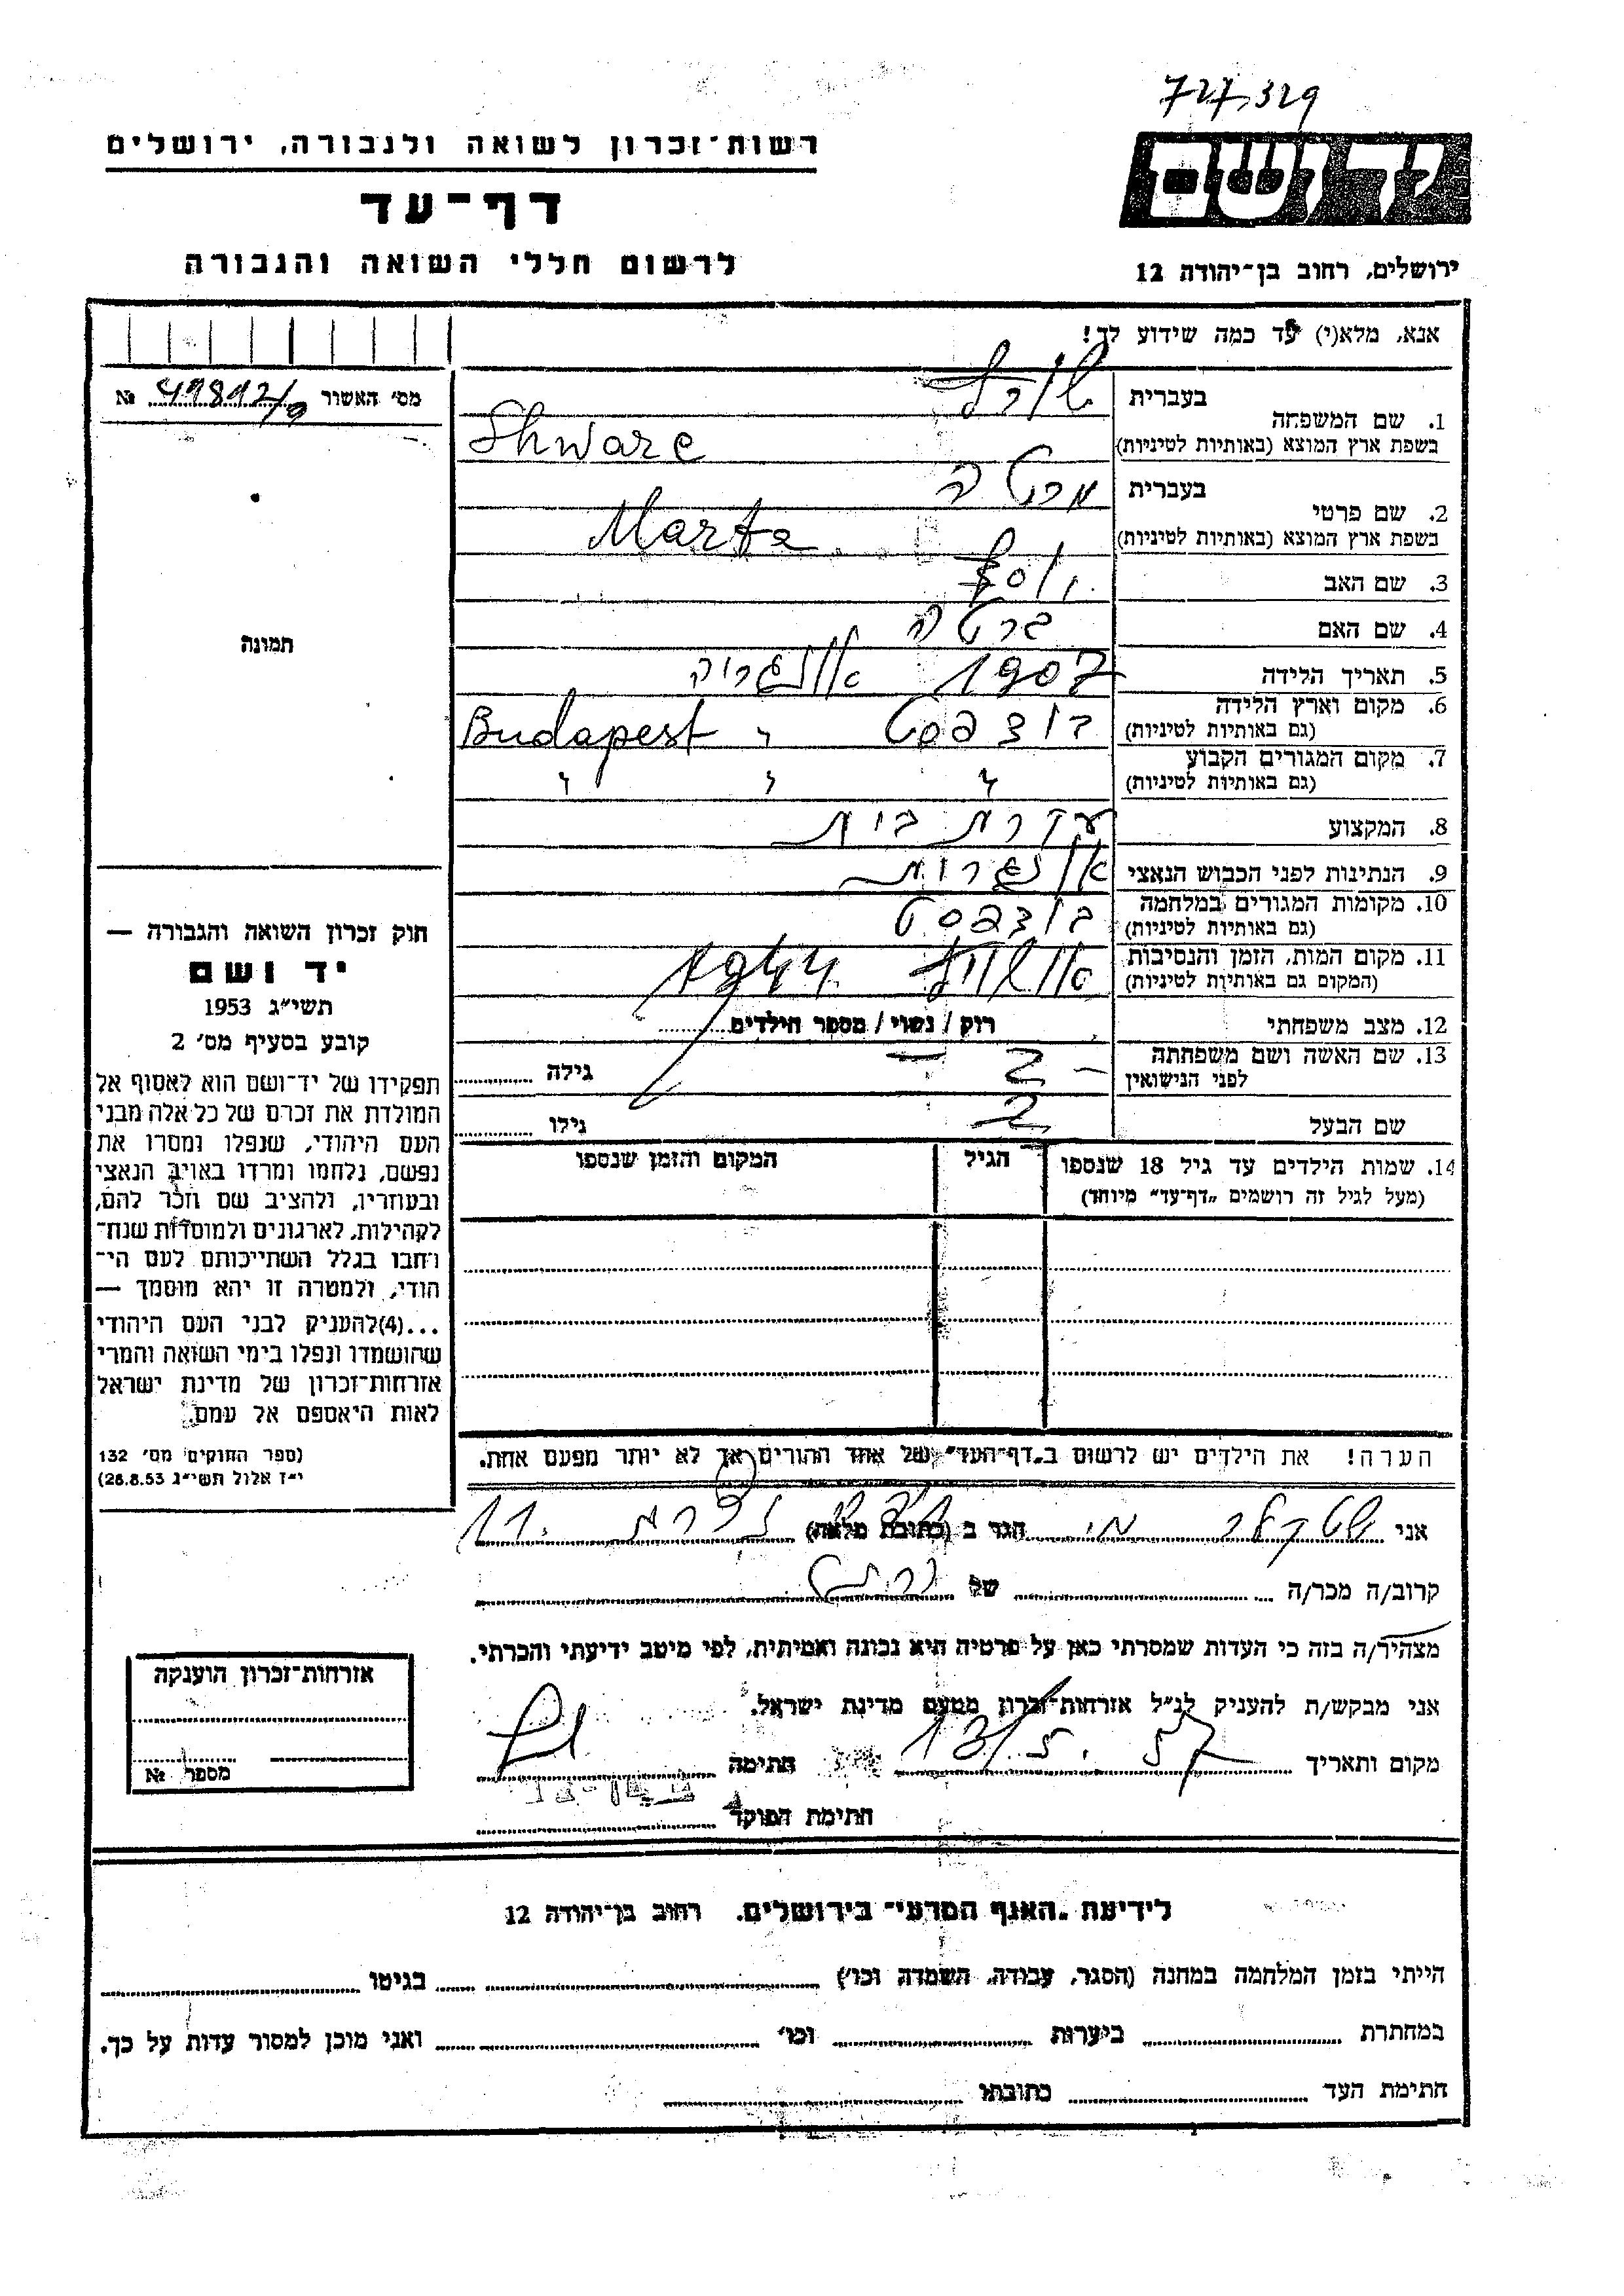 727,329
יד ושם
רשות־זכרון לשואה ולגבורה, ירושלים
דף־עד
לרשום חללי השואה והגבורה
ירושלים, רחוב בן־יהודה 12
אנא, מלא(י) עד כמה שידוע לך!
מס' האשור №
1. שם המשפחה
בעברית שורץ
בשפת ארץ המוצא (באותיות לטיניות) Shwarc
2. שם פרטי
בעברית מרטה
בשפת ארץ המוצא (באותיות לטיניות) Marta
3. שם האב יוסף
4. שם האם ברטה
5. תאריך הלידה 1907
6. מקום וארץ הלידה
(גם באותיות לטיניות) בודפסט " Budapest
7. מקום המגורים הקבוע
(גם באותיות לטיניות) " " "
8. המקצוע עקרת בית
9. הנתינות לפני הכבוש הנאצי
10. מקומות המגורים במלחמה
(גם באותיות לטיניות) בודפסט
11. מקום המות, הזמן והנסיבות
(המקום גם באותיות לטיניות) אושויץ 1944
12. מצב משפחתי רוק / נשוי / מספר הילדים
13. שם האשה ושם משפחתה
לפני הנישואין גילה
שם הבעל גילו
14. שמות הילדים עד גיל 18 שנספו הגיל המקום והזמן שנספו
(מעל לגיל זה רושמים „דף־עד" מיוחד)
הערה! את הילדים יש לרשום ב„דף־העד" של אחד ההורים אך לא יותר מפעם אחת.
תמונה
חוק זכרון השואה והגבורה —
יד ושם
תשי"ג 1953
קובע בסעיף מס' 2
תפקידו של יד־ושם הוא לאסוף אל
המולדת את זכרם של כל אלה מבני
העם היהודי, שנפלו ומסרו את
נפשם, נלחמו ומרדו באויב הנאצי
ובעוזריו, ולהציב שם וזכר להם,
לקהילות, לארגונים ולמוסדות שנח־
רבו בגלל השתייכותם לעם הי־
הודי, ולמטרה זו יהא מוסמך —
...(4)להעניק לבני העם היהודי
שהושמדו ונפלו בימי השואה והמרי
אזרחות־זכרון של מדינת ישראל
לאות היאספם אל עמם.
(ספר החוקים מס' 132
י"ז אלול תשי"ג 28.8.53)
אני הגר ב (כתובת מלאה) 11
קרוב/ה מכר/ה של
מצהיר/ה בזה כי העדות שמסרתי כאן על פרטיה היא נכונה ואמיתית, לפי מיטב ידיעתי והכרתי.
אני מבקש/ת להעניק לנ"ל אזרחות־זכרון מטעם מדינת ישראל.
מקום ותאריך 13/5. 57 חתימה
חתימת הפוקד
אזרחות־זכרון הוענקה
מספר №
לידיעת „האגף המדעי" בירושלים, רחוב בן־יהודה 12
הייתי בזמן המלחמה במחנה (הסגר, עבודה, השמדה וכו') בגיטו
במחתרת ביערות וכו' ואני מוכן למסור עדות על כך.
חתימת העד כתובתו